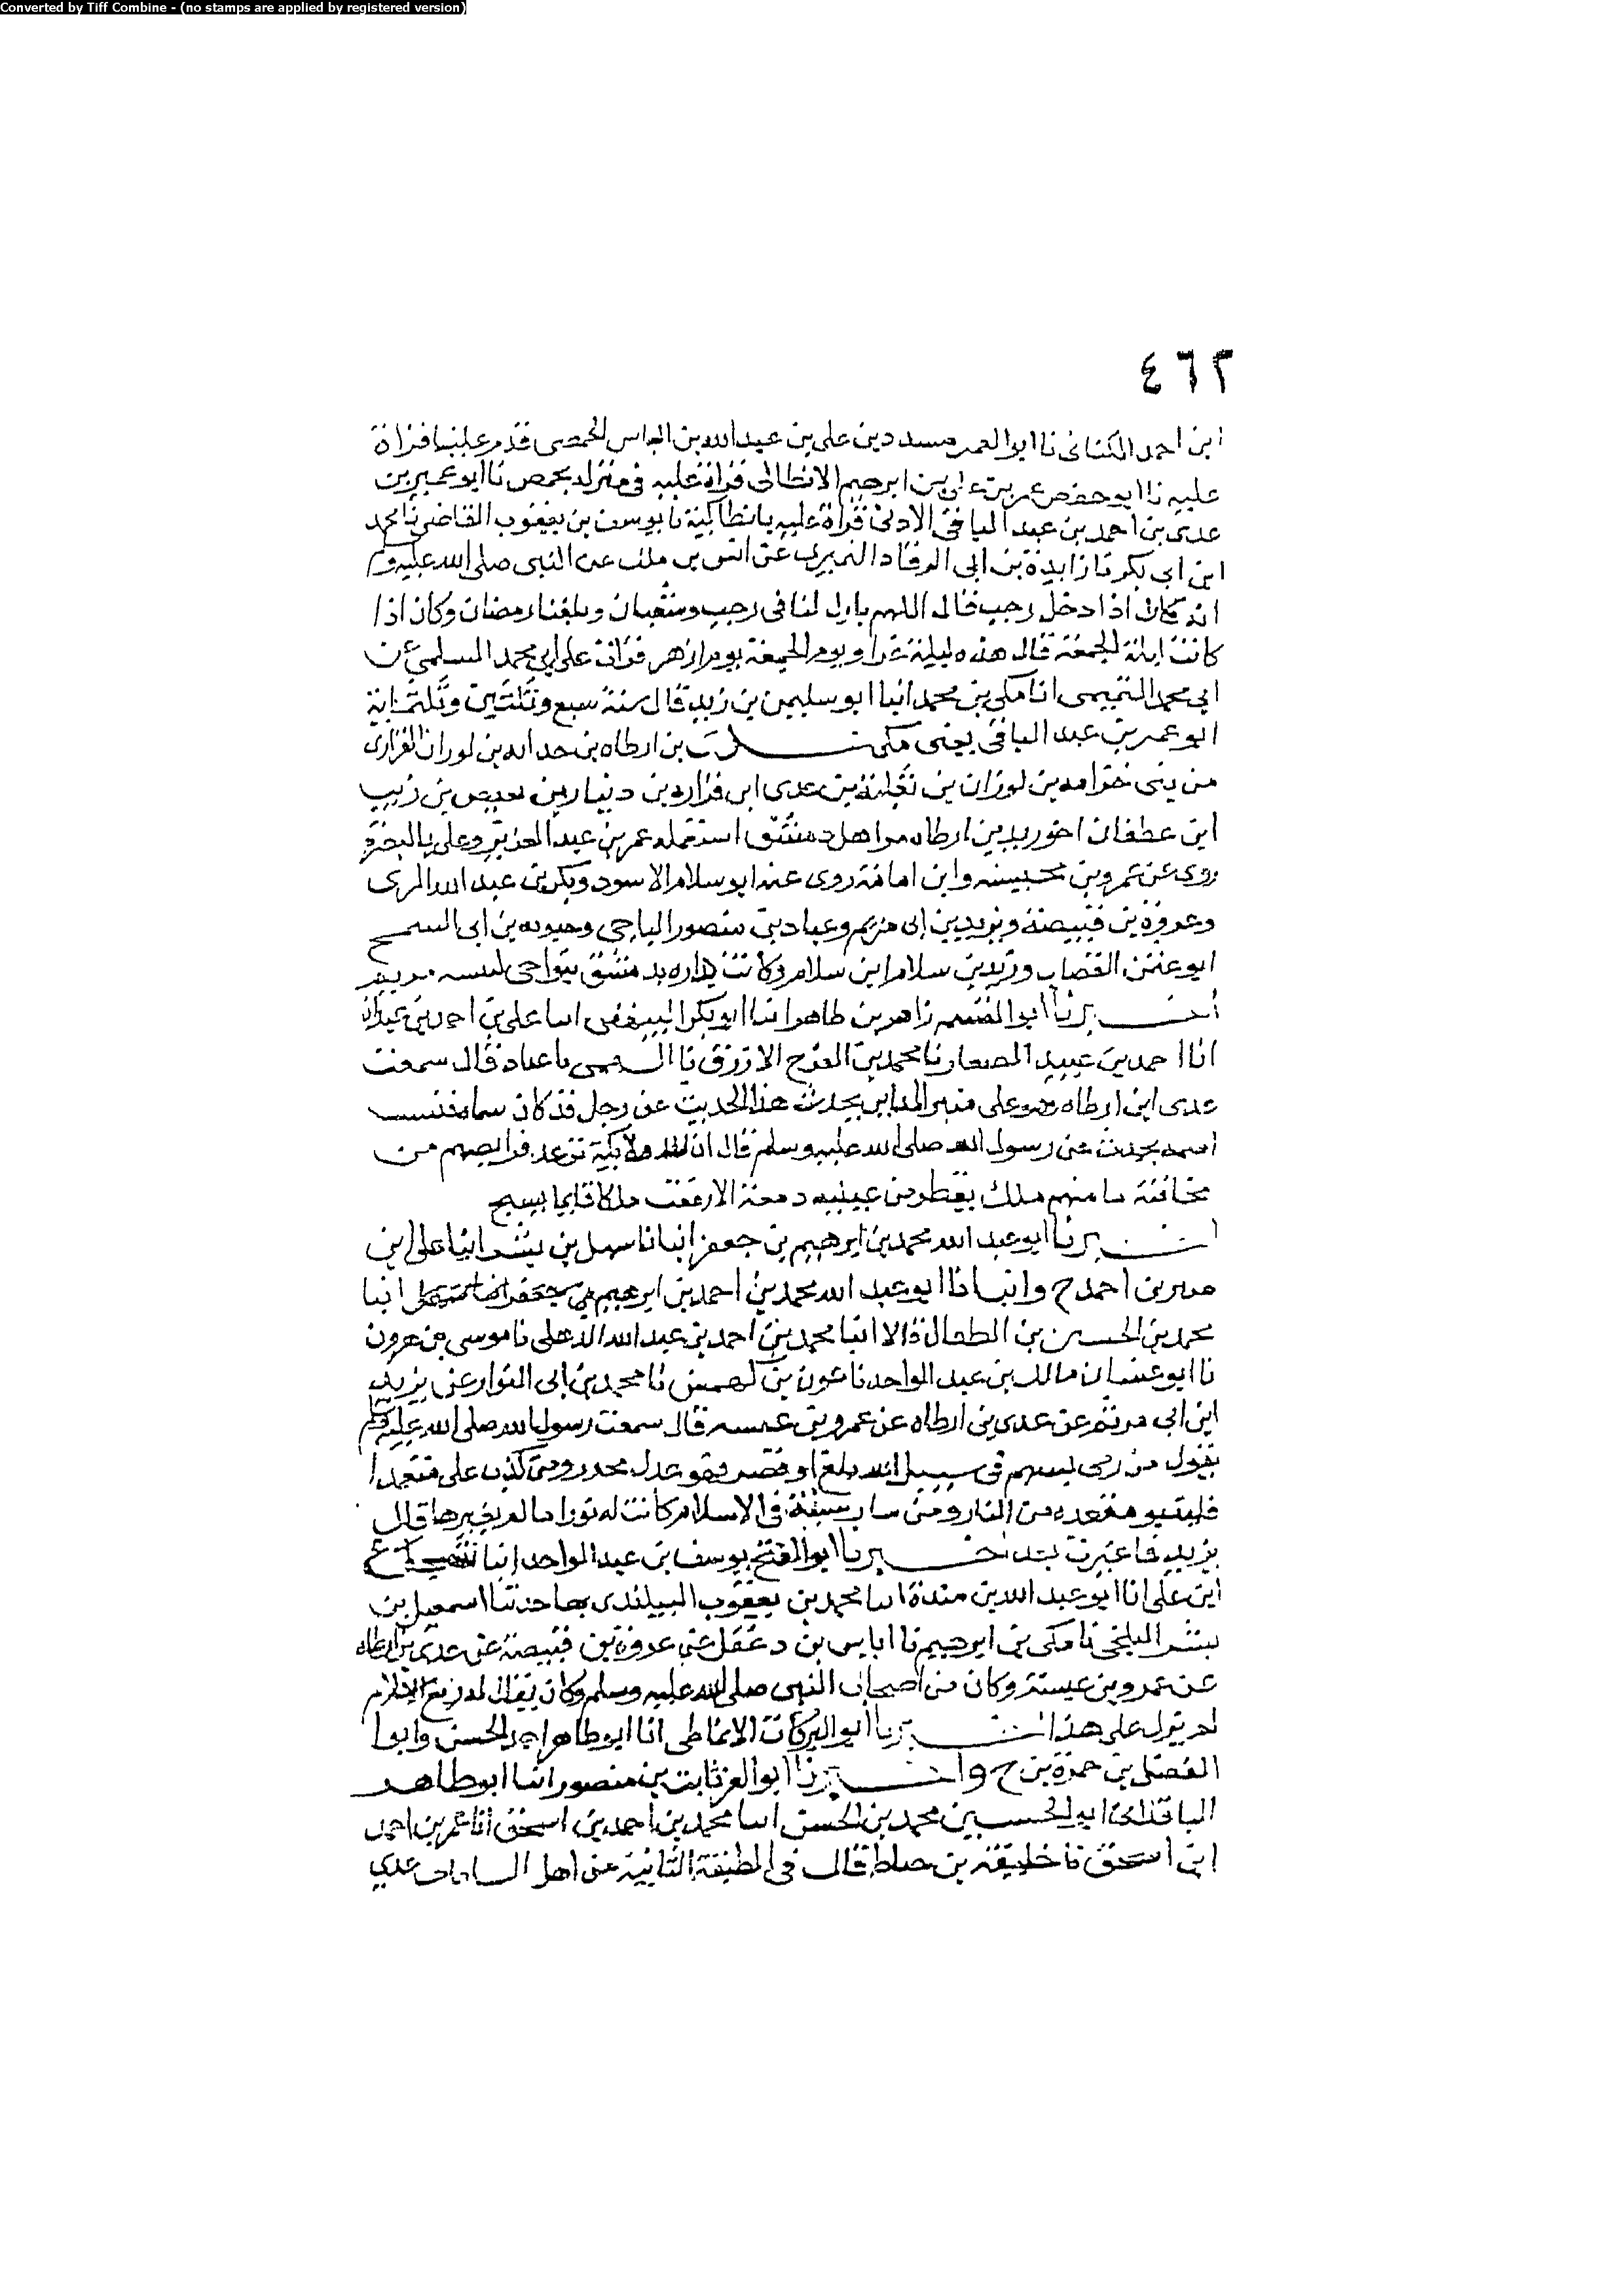 Converted by Tiff Combine - (no stamps are applied by registered version)
٤٦٢
ابن احمد الكتانى نا ابو العمر مسدد بن على بن عبد الله بن العباس الحمصى قدم علينا قراة
عليه نا ابو حفص عمر بن على بن ابرهيم الانطاكى قراة عليه فى منزله بحمص نا ابو عمير بن
عدى بن احمد بن عبد الباقى الادنى قراة عليه بانطاكية نا يوسف بن يعقوب القاضى نا محمد
ابن ابى بكر نا زايدة بن ابى الرقاد النميرى عن انس بن ملك عن النبى صلى الله عليه وسلم
انه كان اذا دخل رجب قال اللهم بارك لنا فى رجب وشعبان وبلغنا رمضان وكان اذا
كانت ليلة الجمعة قال هذه ليلة غرا ويوم الجمعة يوم ازهر قرات على ابى محمد السلمى عن
ابى محمد التميمى انا مكى بن محمد انبا ابو سليمن بن زبر قال سنة سبع وثلثين وثلثماية
ابو عمير بن عبد الباقى يعنى مكى بن ارطاه بن حد الله بن لوران الفزارى
من بنى خزامه بن لوزان بن ثعلبة بن عدى ابن فزاره بن دنيار بن بعيص بن زيب
ابن عطفان اخو زيد بن ارطاه من اهل دمشق استعمله عمر بن عبد العزيز وعلى بالبصرة
روى عن عمرو بن عبسه وابن امامة روى عنه ابو سلام الاسود وبكر بن عبد الله المزى
وعروة بن قبيصة ويزيد بن ابى مريم وعباد بن منصور الناجى وحيوه بن ابى السمح
ابو عنتن القصاب وزيد بن سلام ابن سلام وكانت داره بدمشق بنواحى
اخبرنا ابو القسم زاهر بن طاهر انبا ابو بكر البيهقى انبا على بن احمد بن عبدان
انا احمد بن عبيد الصفار نا محمد بن الفرج الازرق نا السهمى نا عباد قال سمعت
عدى ابن ارطاه وهو على منبر المداين يحدث هذا الحديث عن رجل قد كان سماه فنسيت
اسمه يحدث عن رسول الله صلى الله عليه وسلم قال ان لله ملايكة ترعد فرايصهم من
مخافته ما منهم ملك يقطر من عينيه دمعة الا وقعت ملكا قايما يسبح
اخبرنا ابو عبد الله محمد بن ابرهيم بن جعفر انبانا سهل بن بشر انبا على بن
منير بن احمد ح وانبانا ابو عبد الله محمد بن احمد بن ابرهيم بن جعفر انبا
محمد بن الحسين بن الطفال قالا انبا محمد بن احمد بن عبد الله الذهلى نا موسى بن هرون
نا ابو غسان مالك بن عبد الواحد نا عون بن كهمس نا محمد بن ابى النوار عن يزيد
ابن ابى مريم عن عدى بن ارطاه عن عمرو بن عبسه قال سمعت رسول الله صلى الله عليه وسلم
يقول من رمى بسهم فى سبيل الله بلغ او قصر فهو عدل محرر ومن كذب على متعمدا
فليتبو مقعده من النار ومن شاب شيبة فى الاسلام كانت له نورا ما لم يغيرها قال
يزيد فاغبرت بعد اخبرنا ابو الفتح يوسف بن عبد الواحد انبا شجاع
ابن على انا ابو عبد الله بن مندة انبا محمد بن يعقوب البيلندى بها حدثنا اسمعيل بن
بشر البلخى نا مكى بن ابرهيم نا اياس بن دغفل عن عروة بن قبيصة عن عدى بن ارطاه
عن عمرو بن عبسة وكان من اصحاب النبى صلى الله عليه وسلم وكان يقال له ربع الاسلام
لم يزل على هذا اخبرنا ابو البركات الانماطى انا ابو طاهر احمد بن الحسن وابوا
الفضل بن حمزة بن ح واخبرنا ابو العز ثابت بن منصور انبا ابو طاهر
الباقلانى ابو الحسين محمد بن الحسن انبا محمد بن احمد بن اسحق انا عمر بن احمد
ابن اسحق نا خليفة بن خياط قال فى الطبقة الثانية من اهل الشامات عدى